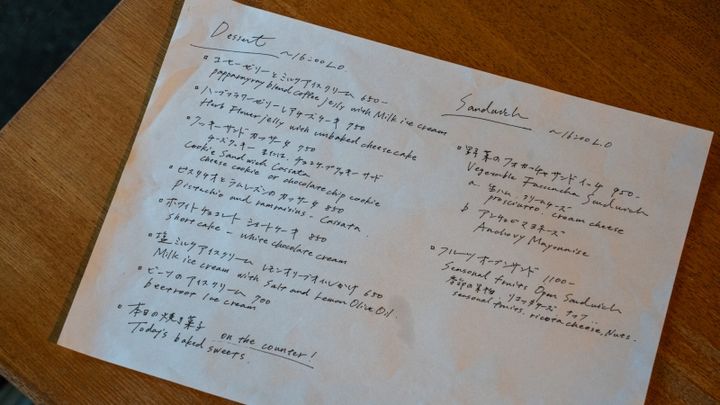 Dessert ~16:00 L.O.
• コーヒーゼリーとミルクアイスクリーム 650-
papparayray blend coffee jelly with Milk ice cream
• ハーブフラワーゼリーレアチーズケーキ 750
Herb Flower jelly with unbaked cheesecake
• クッキーサンド カッサータ 750
チーズクッキー または チョコチップクッキーサンド
Cookie Sandwich Cassata
cheese cookie or chocolate chip cookie
• ピスタチオとラムレーズンのカッサータ 850
Pistachio and ramraisins - Cassata.
• ホワイトチョコレート ショートケーキ 850
Shortcake - white chocolate cream
• 塩ミルクアイスクリーム レモンオリーブオイルがけ 650
Milk ice cream with Salt and Lemon Olive Oil.
• ビーツのアイスクリーム 700
beetroot Ice cream
• 本日の焼き菓子 on the counter!
Today's baked sweets.
Sandwich ~16:00 L.O
• 野菜のフォカッチャサンドイッチ 950-
Vegetable Fascuncha Sandwich
a 生ハム クリームチーズ
prosciutto. cream cheese
b アンチョビマヨネーズ
Anchovy Mayonnise
• フルーツオープンサンド 1100-
Seasonal fruits Open Sandwich
季節の果物 リコッタチーズ ナッツ
seasonal fruits. ricotta cheese, Nuts.